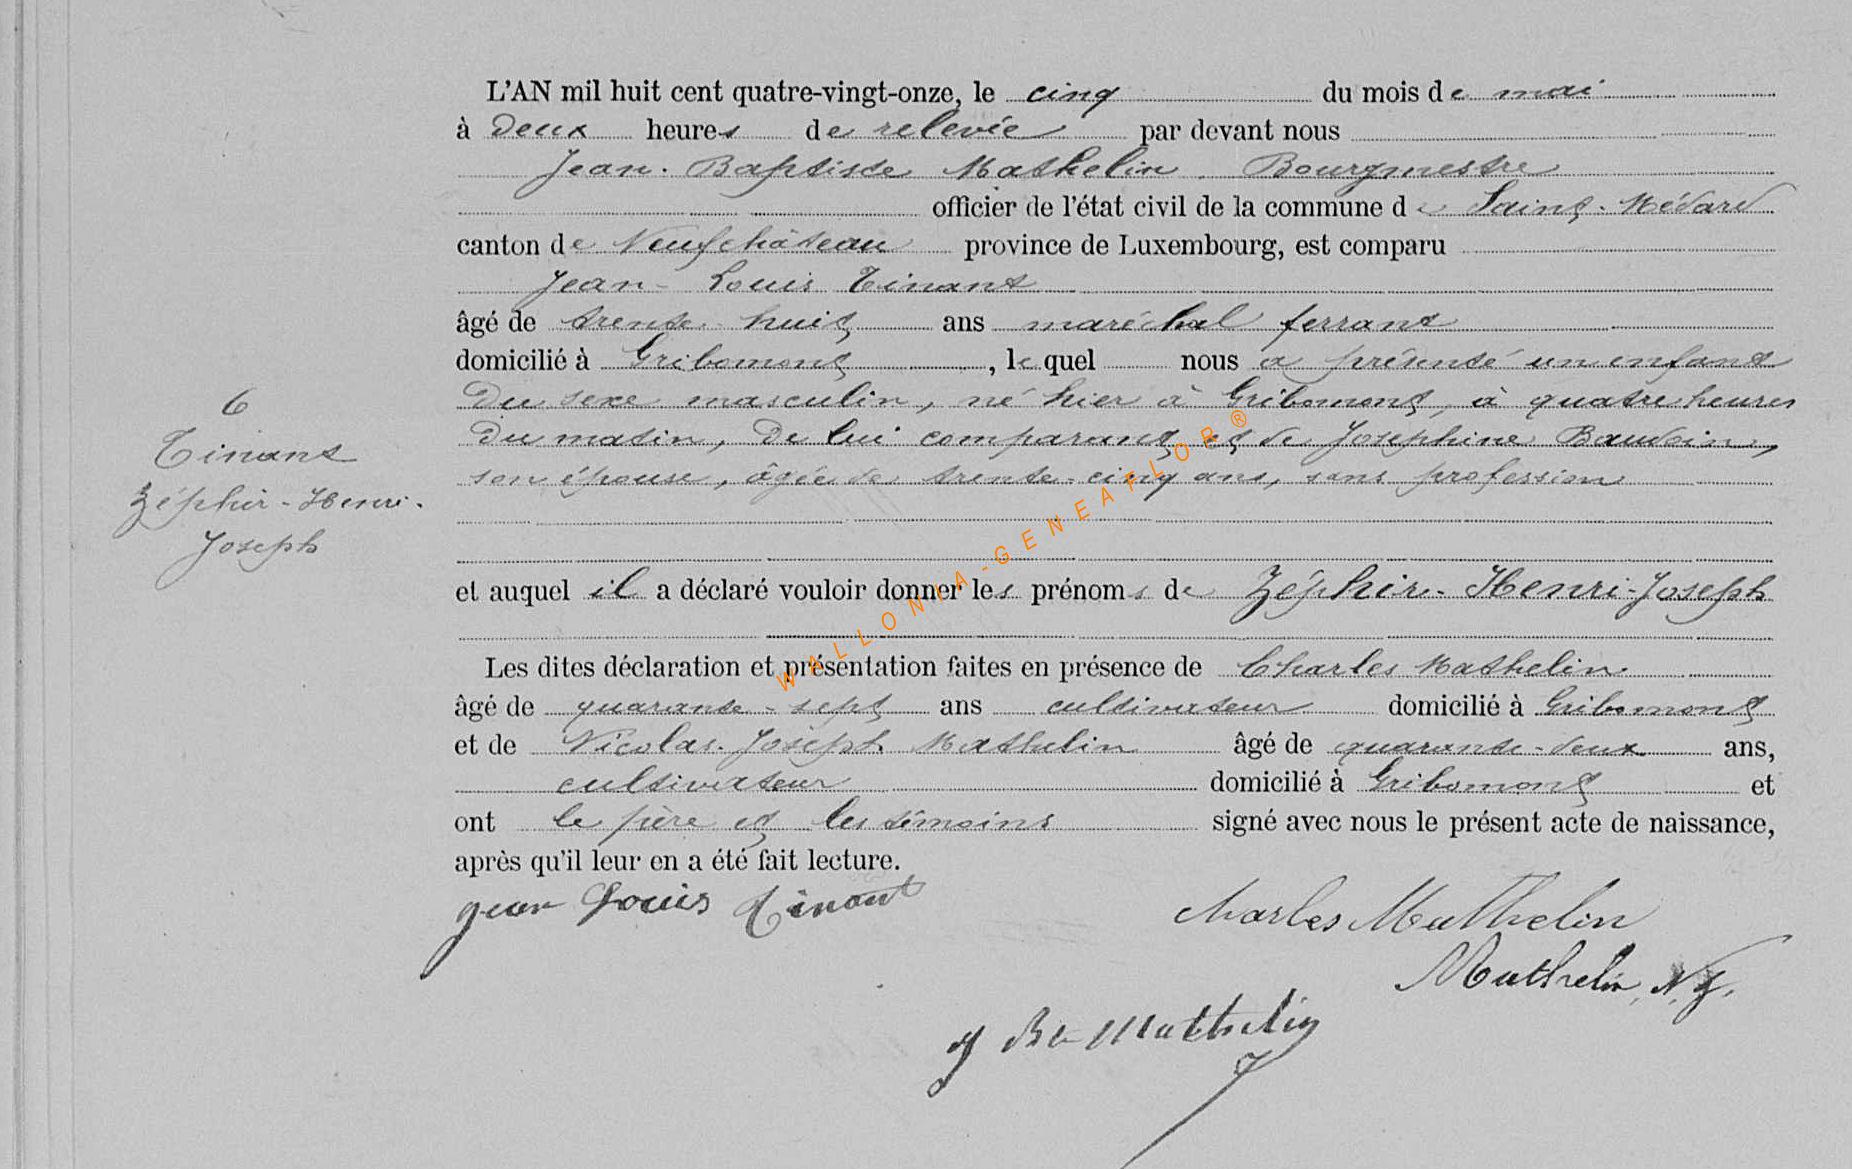 L'AN mil huit cent quatre-vingt-onze, le cinq du mois de mai
à deux heures de relevée par devant nous
Jean-Baptiste Mathelin, Bourgmestre
officier de l'état civil de la commune de Saint-Médard
canton de Neufchâteau province de Luxembourg, est comparu
Jean-Louis Tinant
âgé de trente-huit ans maréchal ferrant
domicilié à Gribomont, lequel nous a présenté un enfant
du sexe masculin, né hier à Gribomont, à quatre heures
du matin, de lui comparant et de Joséphine Baudoin,
son épouse, âgée de trente-cinq ans, sans profession
6
Tinant
Zéphir-Henri-
Joseph
et auquel il a déclaré vouloir donner les prénoms de Zéphir-Henri-Joseph
Les dites déclaration et présentation faites en présence de Charles Mathelin
âgé de quarante-sept ans cultivateur domicilié à Gribomont
et de Nicolas-Joseph Mathelin âgé de quarante-deux ans,
cultivateur domicilié à Gribomont et
ont le père et les témoins signé avec nous le présent acte de naissance,
après qu'il leur en a été fait lecture.
jean Louis Tinant
Charles Mathelin
Mathelin, N. J.
J Bte Mathelin
WALLONIA-GENEAFLOR®